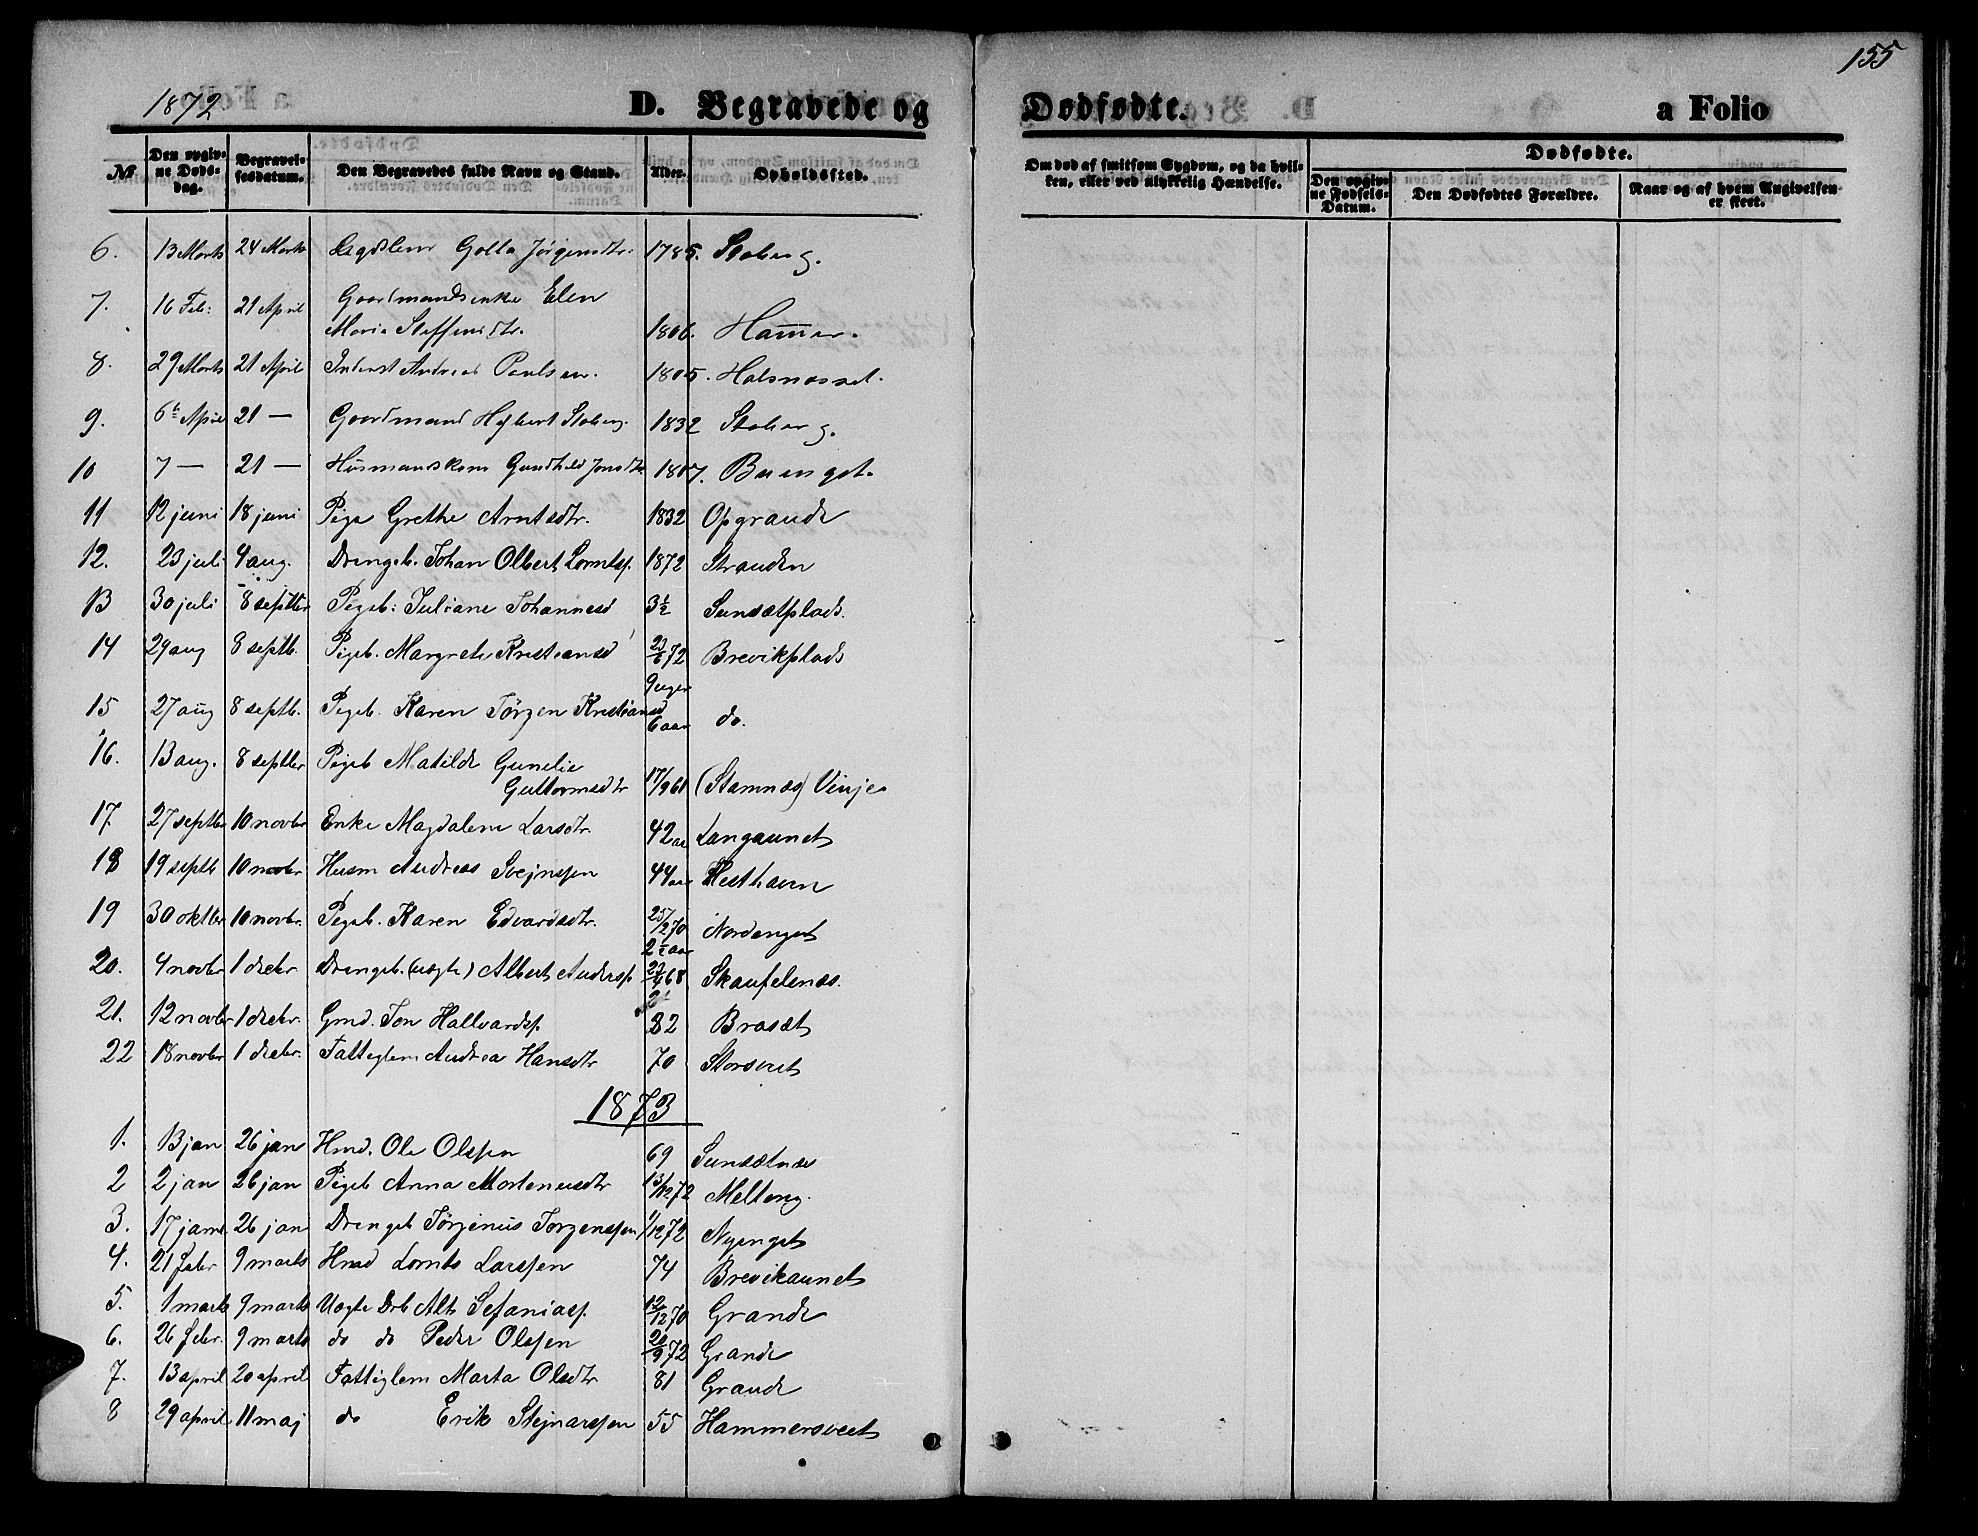 155
1872 D. Begravede og Dødfødte. a Folio
№ Den opgivne Dødsdag. Begravelsesdatum. Den Begravedes fulde Navn og Stand. Alder. Opholdssted. Om død af smitsom Sygdom, og da hvilken, eller ved ulykkelig Hændelse. Dødfødte. Den opgivne Fødsels-Datum. Den Dødfødtes Forældre. Naar og af hvem Angivelsen er skeet.
6. 13 Marts 24 Marts Lægdslem Golla Jørgensdtr. 1785. Staberg.
7. 16 Feb: 21 April Gaardmandsenke Elen
Maria Steffensdtr. 1806. Hamer.
8. 29 Marts 21 April Inderst Andreas Paulsen. 1805. Halsnæsset.
9. 6te April 21 — Gaardmand Hejbert Staberg. 1832 Staberg.
10 7 — 21 — Husmandskone Gundhild Jonsdtr 1807. Buenget.
11 12 juni 18 juni Pige Grethe Arntsdtr. 1832 Opgrande
12. 23 juli 4 aug. Drengeb. Johan Olbert Lorntsp. 1872 Stranden
13 30 juli 8 septbr Pigeb: Juliane Johannesd 3½ Sundsætplads.
14 29 aug 8 septb. Pigeb. Margrete Kristiansd 23/6 72 Brevikplads
9 uger
15 27 aug 8 septb. Pigeb. Karen Jørgen Kristiansd 6 aar do.
16. 13 aug. 8 septbr Pigeb Matilde Gunelie
Guttormsdtr 17/9 61 (Stamnæs) Vinje
17. 27 septbr 10 novbr Enke Magdalene Larsdtr. 42 aar Langaunet
18 19 septb 10 novbr Husm Andreas Svejnssen 44 aar Hesthaven
19 30 oktbr 10 novbr. Pigeb. Karen Edvardsdtr. 25/2 70 Nordenget
2½ aar
20. 4 novbr 1 decbr. Drengeb. (uægte) Albert Andersp. 23/4 68 Skaufelsnæs.
21. 12 novbr 1 decbr. Gmd. Jon Hallvardsp. 82 Brasæt
22 18 novbr 1 decbr. Fattiglem Andrea Hansdtr 70 Storsvet
1873
1. 13 jan 26 jan Hmd. Ole Olssen 69 Sundsætnæs
2 2 jan 26 jan Pigeb Anna Mortensdtr 13/12 72 Melteng.
3. 17 jan 26 jan Drengeb Jørginus Jorgenssen 1/12 72 Nyenget
4. 21 febr 9 marts Hmd Lornts Larssen 74 Brevikaunet
5. 1 marts 9 marts Uægte Drb Alt Sefaniasp. 12/12 70 Grande
6. 26 febr. 9 marts do do Peder Olssen 20/9 72 Grande
7. 13 april 20 april Fattiglem Marta Olsdtr 81 Grande
8 29 april 11 maj do Erik Stejnarssen 55 Hammersveet